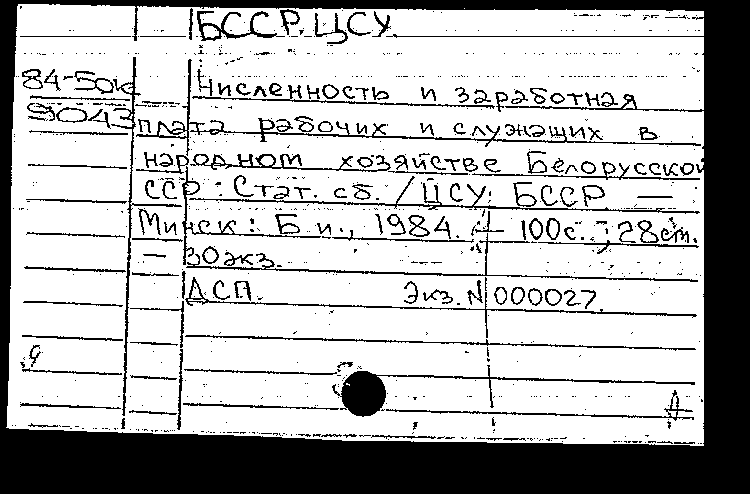 БССР. ЦСУ.
84-50к
9043
Численность и заработная
плата рабочих и служащих в
народном хозяйстве Белорусской
ССР : Стат. сб. / ЦСУ БССР —
Минск : Б. и., 1984. — 100с. ; 28см.
— 30экз.
ДСП. Экз. N 000027.